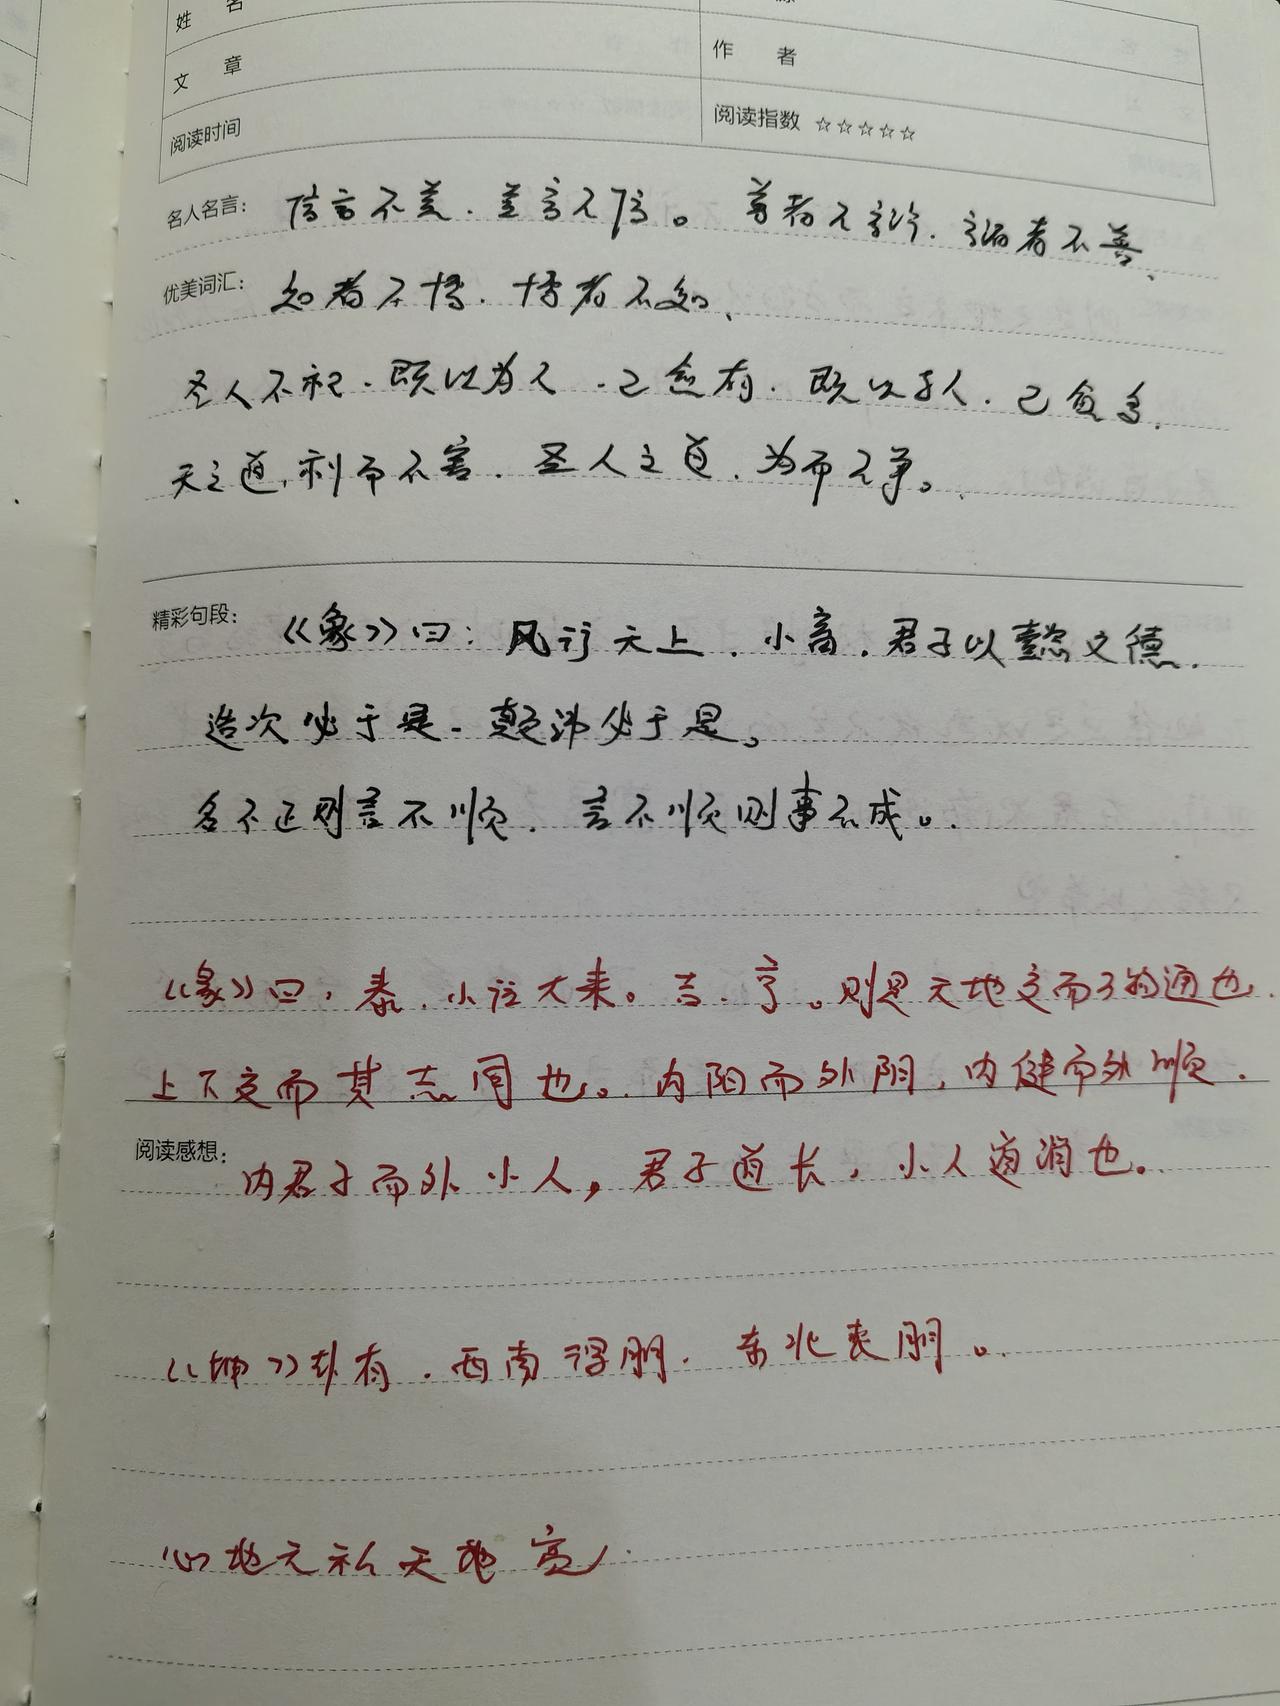 姓 名
文 章
作 者
阅读时间
阅读指数 ☆☆☆☆☆
名人名言: 信言不美.美言不信。善者不辩.辩者不善、
优美词汇: 知者不博.博者不知、
圣人不积.既以为人.己愈有.既以予人.己愈多.
天之道,利而不害.圣人之道.为而不争。
精彩句段: 《象》曰:风行天上.小畜.君子以懿文德.
造次必于是.颠沛必于是。
名不正则言不顺.言不顺则事不成。
《彖》曰,泰.小往大来。吉.亨。则是天地交而万物通也.
上下交而其志同也。内阳而外阴,内健而外顺.
阅读感想: 内君子而外小人,君子道长,小人道消也。
《坤》卦有.西南得朋.东北丧朋。
心地无私天地宽.